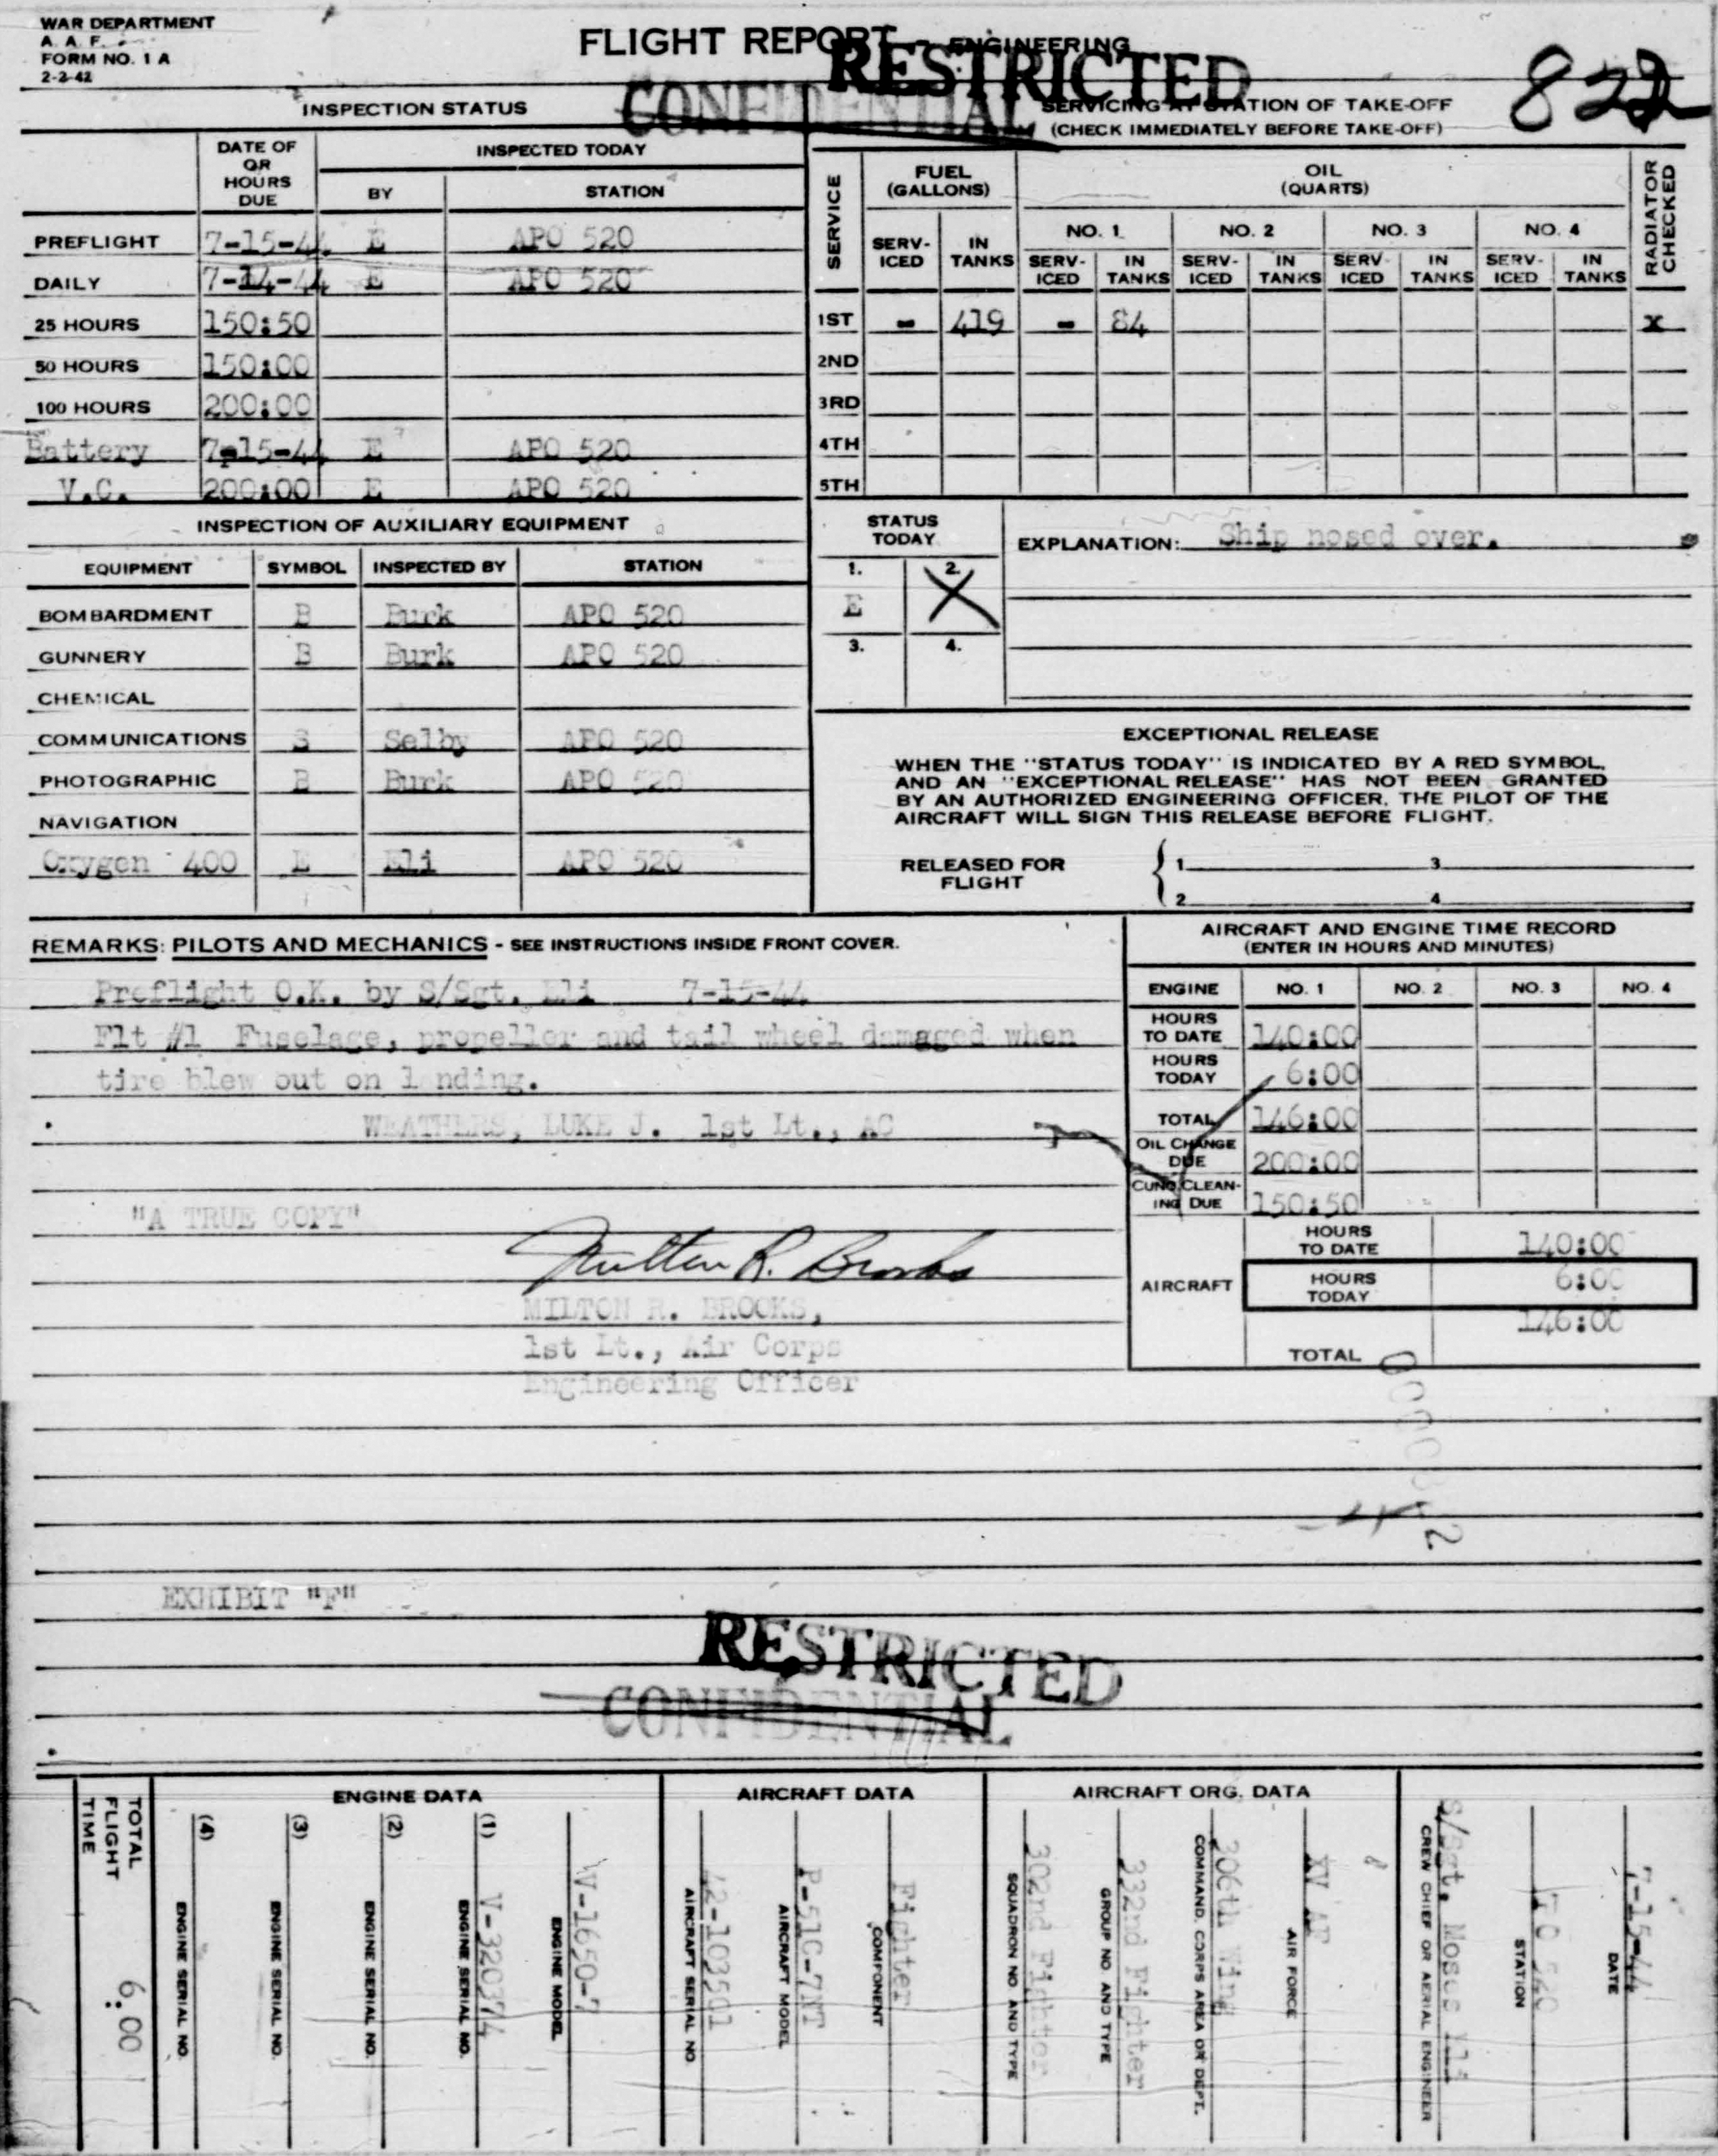 WAR DEPARTMENT
A. A. F.
FORM NO. 1 A
2-2-42
FLIGHT REPORT - ENGINEERING
RESTRICTED
CONFIDENTIAL
822
INSPECTION STATUS
DATE OF OR HOURS DUE
INSPECTED TODAY
BY STATION
PREFLIGHT 7-15-44 E APO 520
DAILY 7-14-44 E APO 520
25 HOURS 150:50
50 HOURS 150:00
100 HOURS 200:00
Battery 7-15-44 E APO 520
V.C. 200:00 E APO 520
SERVICING AT STATION OF TAKE-OFF
(CHECK IMMEDIATELY BEFORE TAKE-OFF)
SERVICE
FUEL (GALLONS)
OIL (QUARTS)
RADIATOR CHECKED
NO. 1 NO. 2 NO. 3 NO. 4
SERV-ICED IN TANKS SERV-ICED IN TANKS SERV-ICED IN TANKS SERV-ICED IN TANKS SERV-ICED IN TANKS
1ST - 419 - 84 x
2ND
3RD
4TH
5TH
INSPECTION OF AUXILIARY EQUIPMENT
EQUIPMENT SYMBOL INSPECTED BY STATION
BOMBARDMENT B Burk APO 520
GUNNERY B Burk APO 520
CHEMICAL
COMMUNICATIONS S Selby APO 520
PHOTOGRAPHIC B Burk APO 520
NAVIGATION
Oxygen 400 E Eli APO 520
STATUS TODAY
1. E
2. X
3.
4.
EXPLANATION: Ship nosed over.
EXCEPTIONAL RELEASE
WHEN THE "STATUS TODAY" IS INDICATED BY A RED SYMBOL,
AND AN "EXCEPTIONAL RELEASE" HAS NOT BEEN GRANTED
BY AN AUTHORIZED ENGINEERING OFFICER, THE PILOT OF THE
AIRCRAFT WILL SIGN THIS RELEASE BEFORE FLIGHT.
RELEASED FOR FLIGHT
1 3
2 4
REMARKS: PILOTS AND MECHANICS - SEE INSTRUCTIONS INSIDE FRONT COVER.
Preflight O.K. by S/Sgt. Eli 7-15-44
Flt #1 Fuselage, propeller and tail wheel damaged when
tire blew out on l nding.
WEATHERS, LUKE J. 1st Lt., AC
"A TRUE COPY"
Milton R. Brooks
MILTON R. BROOKS,
1st Lt., Air Corps
Engineering Officer
AIRCRAFT AND ENGINE TIME RECORD
(ENTER IN HOURS AND MINUTES)
ENGINE NO. 1 NO. 2 NO. 3 NO. 4
HOURS TO DATE 140:00
HOURS TODAY 6:00
TOTAL 146:00
OIL CHANGE DUE 200:00
CUNO CLEAN-ING DUE 150:50
AIRCRAFT
HOURS TO DATE 140:00
HOURS TODAY 6:00
TOTAL 146:00
EXHIBIT "F"
RESTRICTED
CONFIDENTIAL
TOTAL FLIGHT TIME 6:00
ENGINE DATA
(4) ENGINE SERIAL NO.
(3) ENGINE SERIAL NO.
(2) ENGINE SERIAL NO.
(1) ENGINE SERIAL NO. V-320374
ENGINE MODEL V-1650-7
AIRCRAFT DATA
AIRCRAFT SERIAL NO 42-103501
AIRCRAFT MODEL P-51C-7NT
COMPONENT Fighter
AIRCRAFT ORG. DATA
SQUADRON NO AND TYPE 302nd Fighter
GROUP NO AND TYPE 332nd Fighter
COMMAND, CORPS AREA OR DEPT. 306th Wing
AIR FORCE XV AF
CREW CHIEF OR AERIAL ENGINEER S/Sgt. Moses Eli
STATION APO 520
DATE 7-15-44